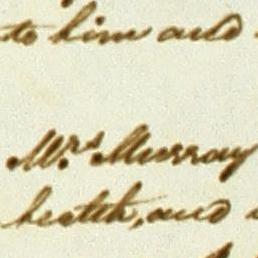 to him and
Mrs Murray
health, and